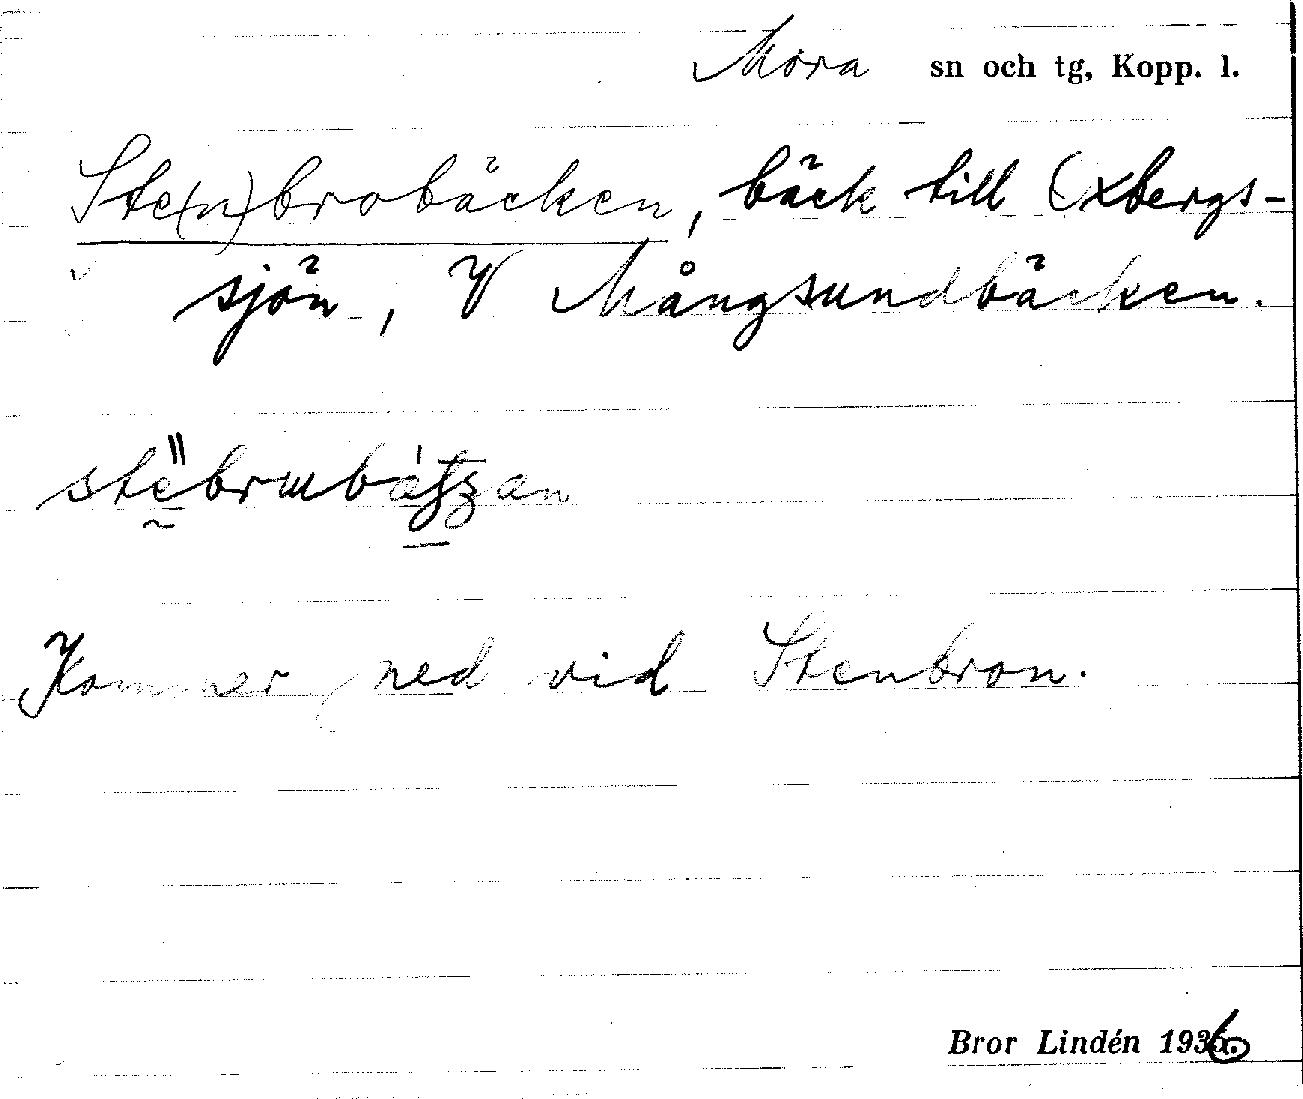 Mora sn och tg, Kopp. l.
Ste(n)brobäcken, bäck till Oxbergs-
sjön, V Mångsundbäcken.
Kommer ned vid Stenbron.
Bror Lindén 1936.